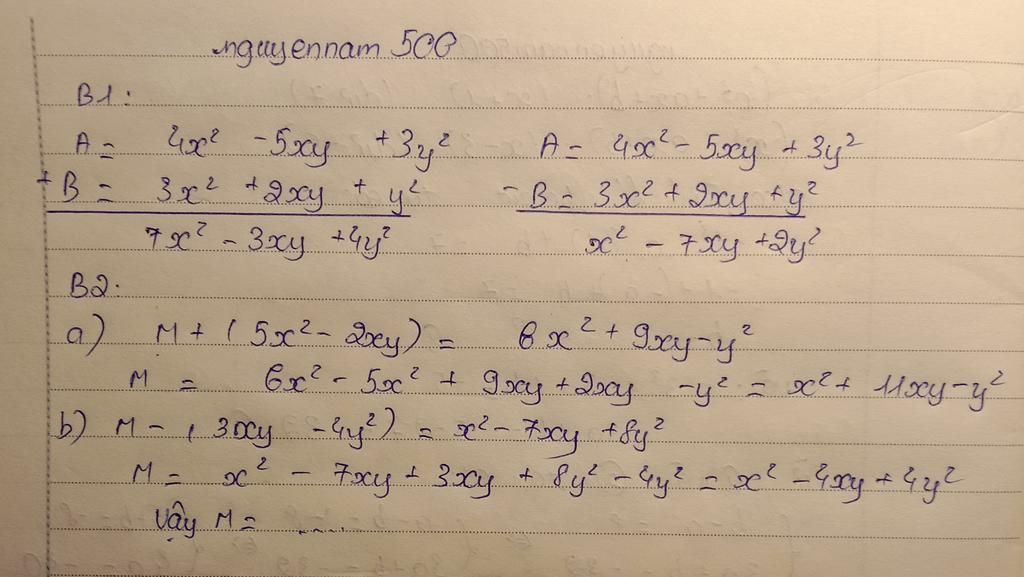 nguyennam 500
B1:
A = 4x² - 5xy + 3y² A = 4x² - 5xy + 3y²
+ B = 3x² + 2xy + y² - B = 3x² + 2xy + y²
7x² - 3xy + 4y² x² - 7xy + 2y²
B2.
a) M + ( 5x² - 2xy ) = 6x² + 9xy - y²
M = 6x² - 5x² + 9xy + 2xy - y² = x² + 11xy - y²
b) M - ( 3xy - 4y² ) = x² - 7xy + 8y²
M = x² - 7xy + 3xy + 8y² - 4y² = x² - 4xy + 4y²
Vậy M = .....